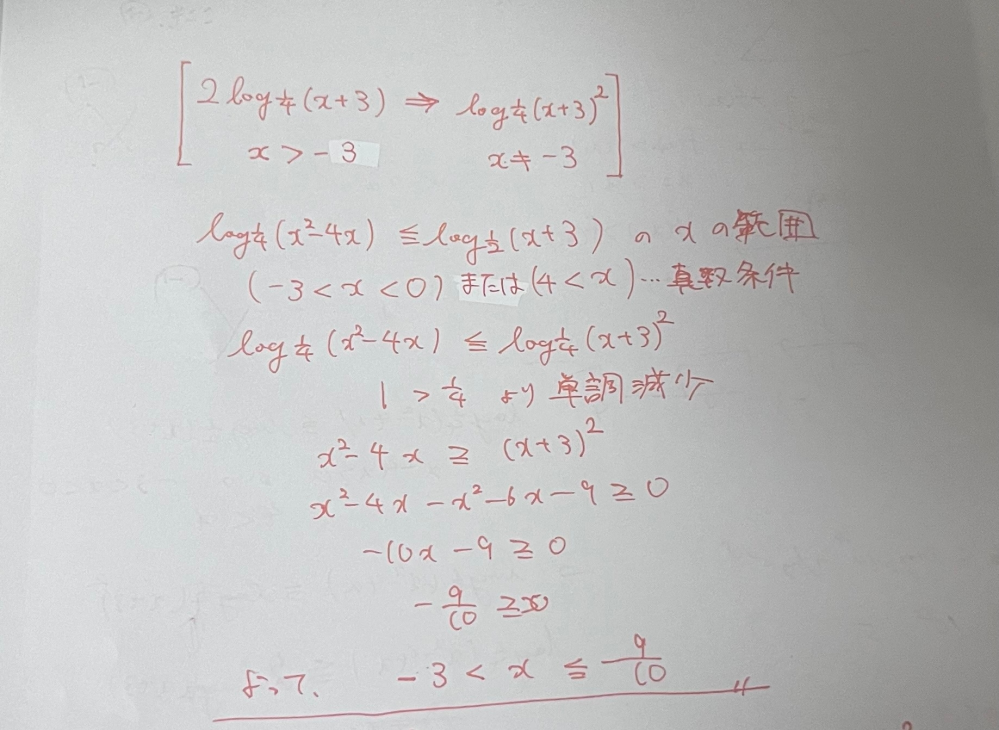 [2log¼(x+3) ⇒ log¼(x+3)²]
x>-3 x≠-3
log¼(x²-4x) ≦ log½(x+3) の x の範囲
(-3<x<0) または (4<x)…真数条件
log¼(x²-4x) ≦ log¼(x+3)²
1 > ¼ より 単調減少
x²-4x ≧ (x+3)²
x²-4x-x²-6x-9≧0
-10x-9≧0
-9/10 ≧x
よって、 -3 < x ≦ -9/10 〃